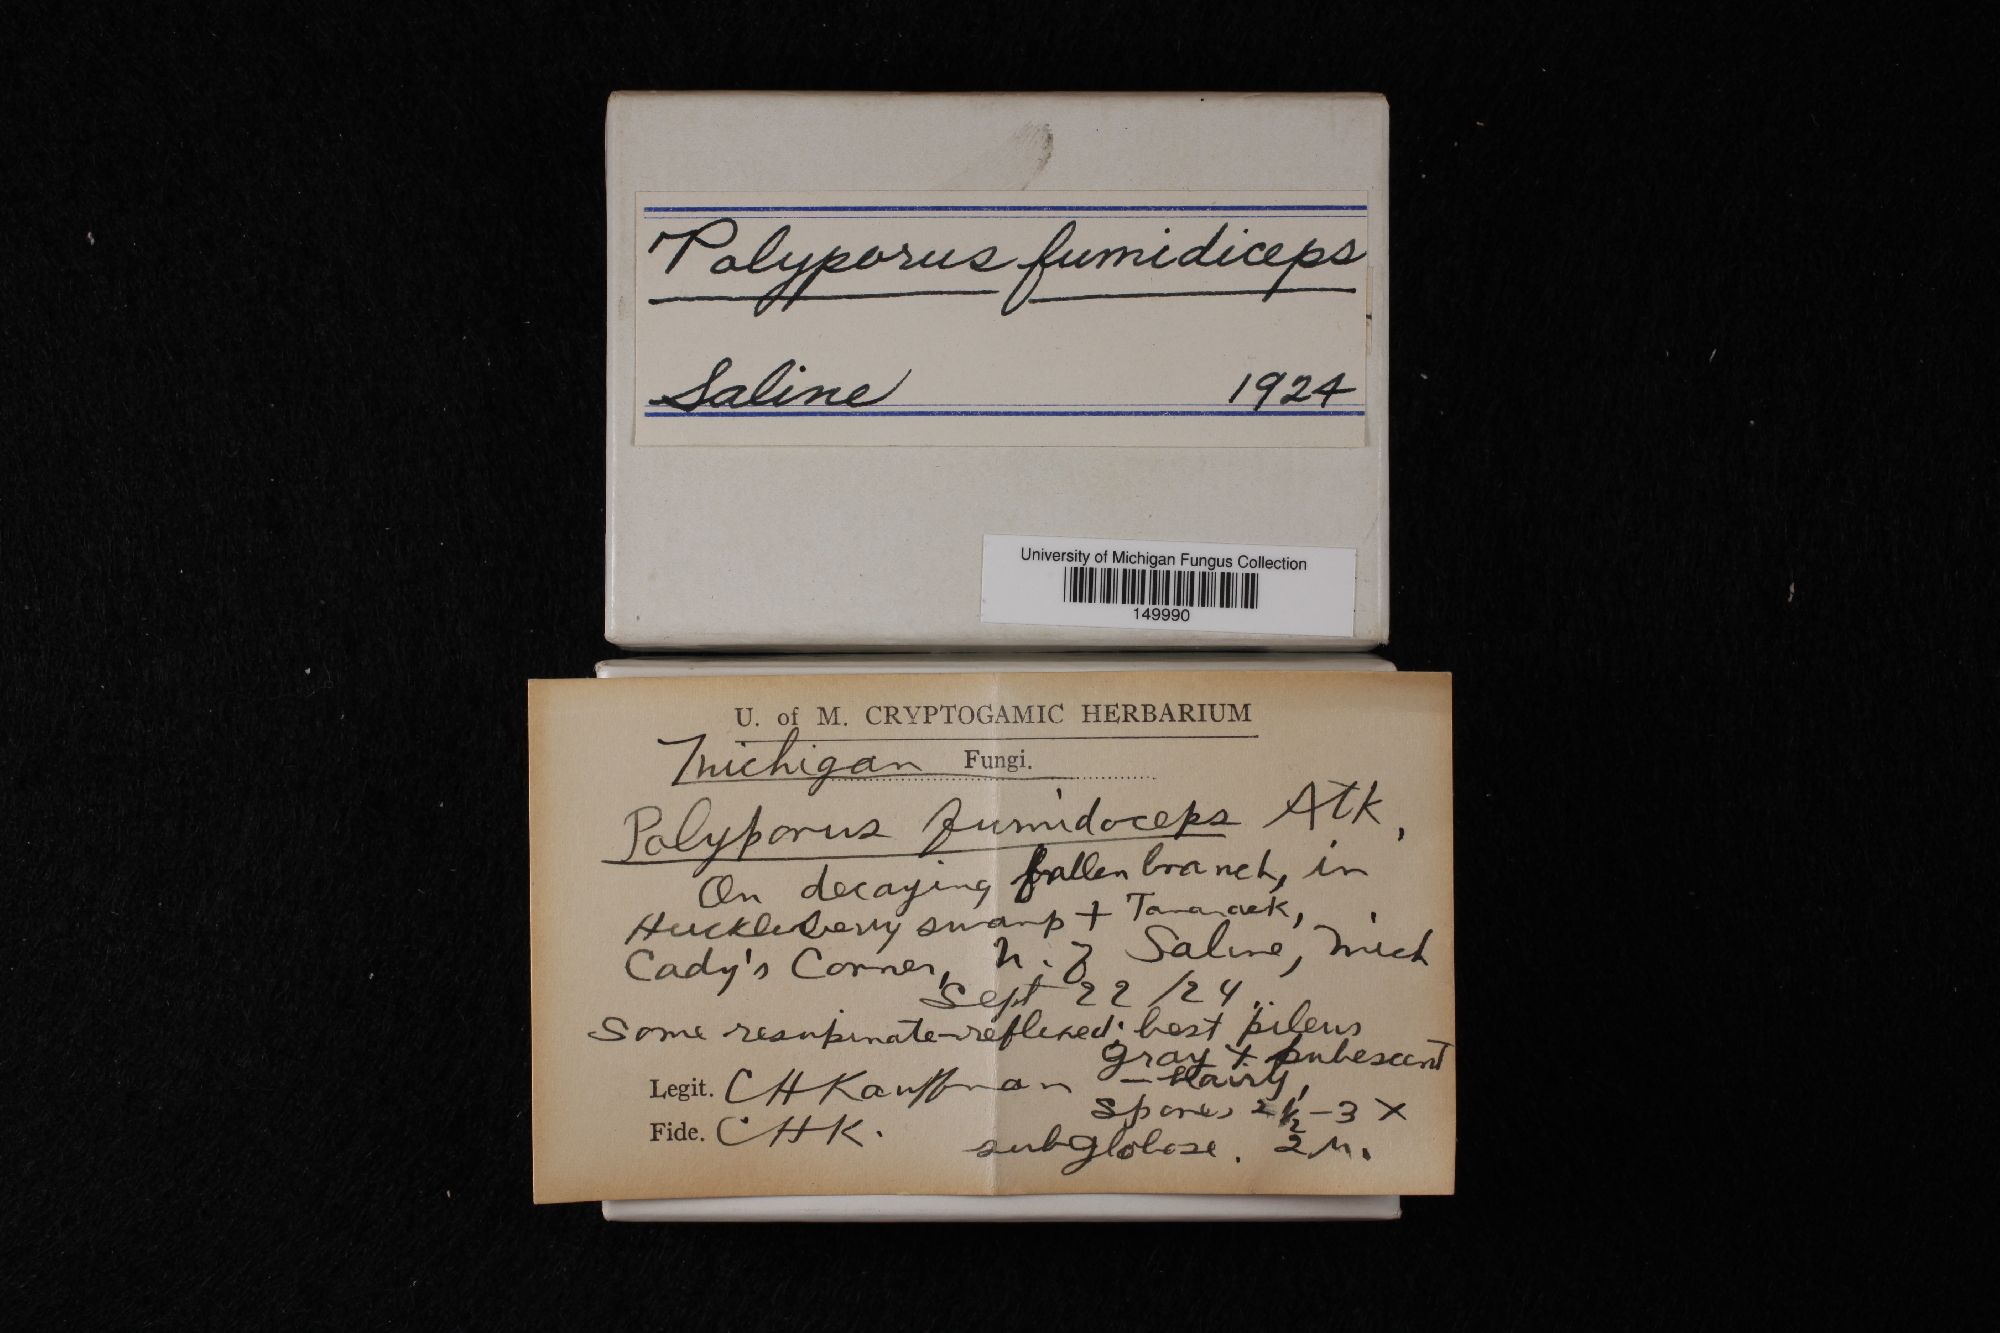 Polyporus fumidiceps
Saline 1924
University of Michigan Fungus Collection
149990
U. of M. CRYPTOGAMIC HERBARIUM
Michigan Fungi.
Polyporus fumidoceps Atk,
On decaying fallen branch, in
Huckleberry swamp + Tamarack,
Cady's Corner, N. of Saline, Mich
Sept 22/24.
Some resupinate-reflexed; best pileus
gray + pubescent
- hairy,
Legit. CHKauffman
Spores 2 1/2 - 3 X
Fide. CHK.
subglobose. 2 µ.